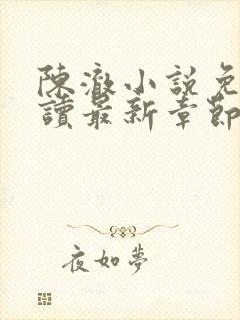 陳澈小說免
讀最新章節
夜如夢